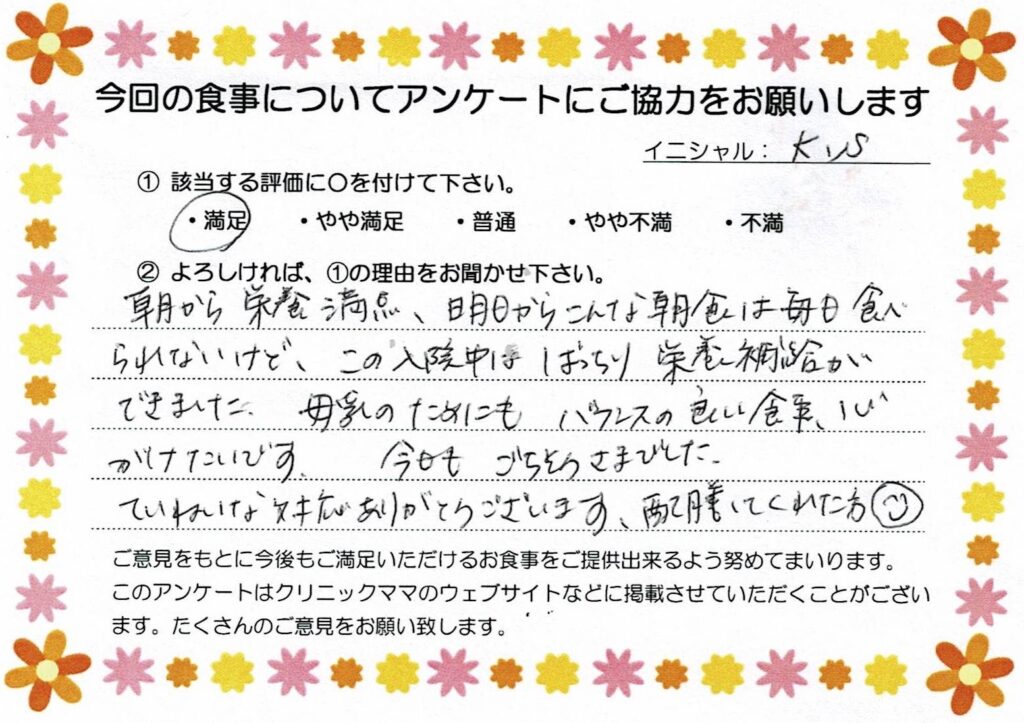 今回の食事についてアンケートにご協力をお願いします
イニシャル： K.S
① 該当する評価に○を付けて下さい。
・満足 ・やや満足 ・普通 ・やや不満 ・不満
② よろしければ、①の理由をお聞かせ下さい。
朝から栄養満点、明日からこんな朝食は毎日食べ
られないけど、この入院中はばっちり栄養補給が
できました。母乳のためにもバランスの良い食事、心
がけたいです。 今日もごちそうさまでした。
ていねいな対応ありがとうございます、配膳してくれた方
ご意見をもとに今後もご満足いただけるお食事をご提供出来るよう努めてまいります。
このアンケートはクリニックママのウェブサイトなどに掲載させていただくことがござい
ます。たくさんのご意見をお願い致します。